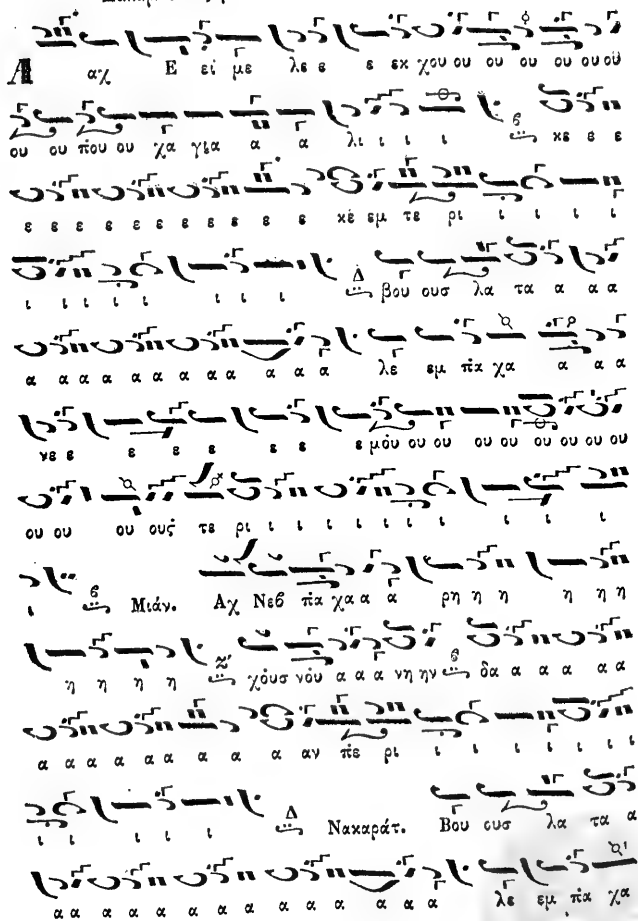 Α αχ Ε εἰ με λε ε ε εκ χου ου ου ου ου ου οὺ
ου ου π̇ου ου χα για α α λι ι ι ι β κε ε ε
ε ε ε ε ε ε ε ε ε ε κὲ εμ τε ρι ι ι ι ι
ι ι ι ι ι ι ι ι Δ βου ουσ λα τα α α α
α α α α α α α α α α α α λε εμ π̇α χα α α α
κε ε ε ε ε ε ε ε μόυ ου ου ου ου ου ου ου ου
ου ου ου ους τε ρι ι ι ι ι ι ι ι ι ι ι
ι β Μιάν. Αχ Νεβ π̇α χα α α ρη η η η η η
η η η η ζ' χόυσ νόυ α α α νη ην β δα α α α α α
α α α α α α α α α αν π̇ε ρι ι ι ι ι ι ι ι
ι ι ι ι ι Δ Νακαράτ. Βου ουσ λα τα α
α α α α α α α α α α α α α α λε εμ π̇α χα